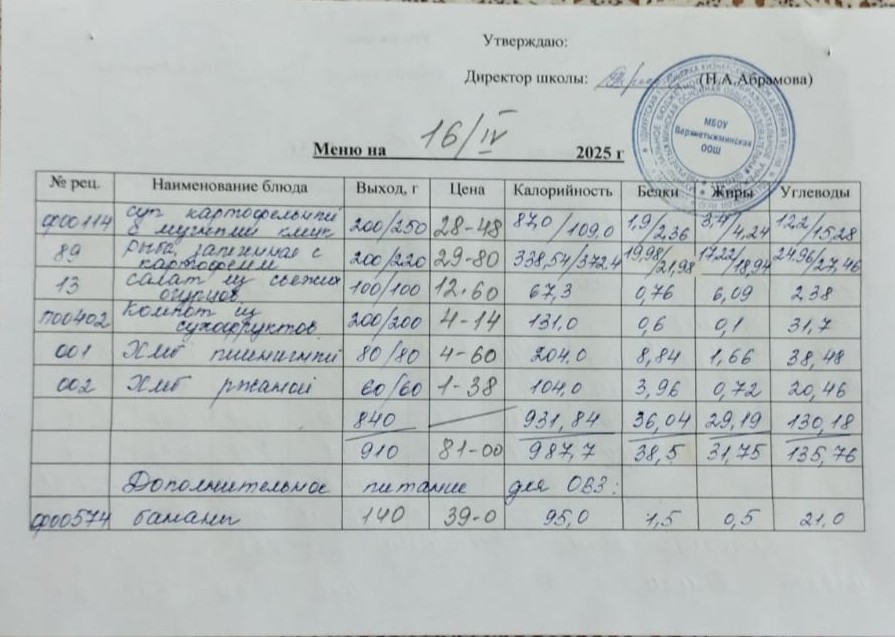 Утверждаю:
Директор школы: (Н.А.Абрамова)
МБОУ
Верхнетыжминская
ООШ
Меню на 16/IV 2025 г
№ рец. Наименование блюда Выход, г Цена Калорийность Белки Жиры Углеводы
ф00114 суп картофельный 200/250 28-48 87,0/109,0 1,9/2,36 3,4/4,24 12,2/15,28
с мучными клец
89 рыба, запечённая с 200/220 29-80 338,54/372,4 19,98/21,98 17,22/18,94 24,96/27,46
картофелем
13 салат из свежих 100/100 12-60 67,3 0,76 6,09 2,38
огурцов
п00402 Компот из 200/200 4-14 131,0 0,6 0,1 31,7
сухофруктов
001 Хлеб пшеничный 80/80 4-60 204,0 8,84 1,66 38,48
002 Хлеб ржаной 60/60 1-38 104,0 3,96 0,72 20,46
840 931,84 36,04 29,19 130,18
910 81-00 987,7 38,5 31,75 135,76
Дополнительное питание для ОВЗ:
ф00574 бананы 140 39-0 95,0 1,5 0,5 21,0